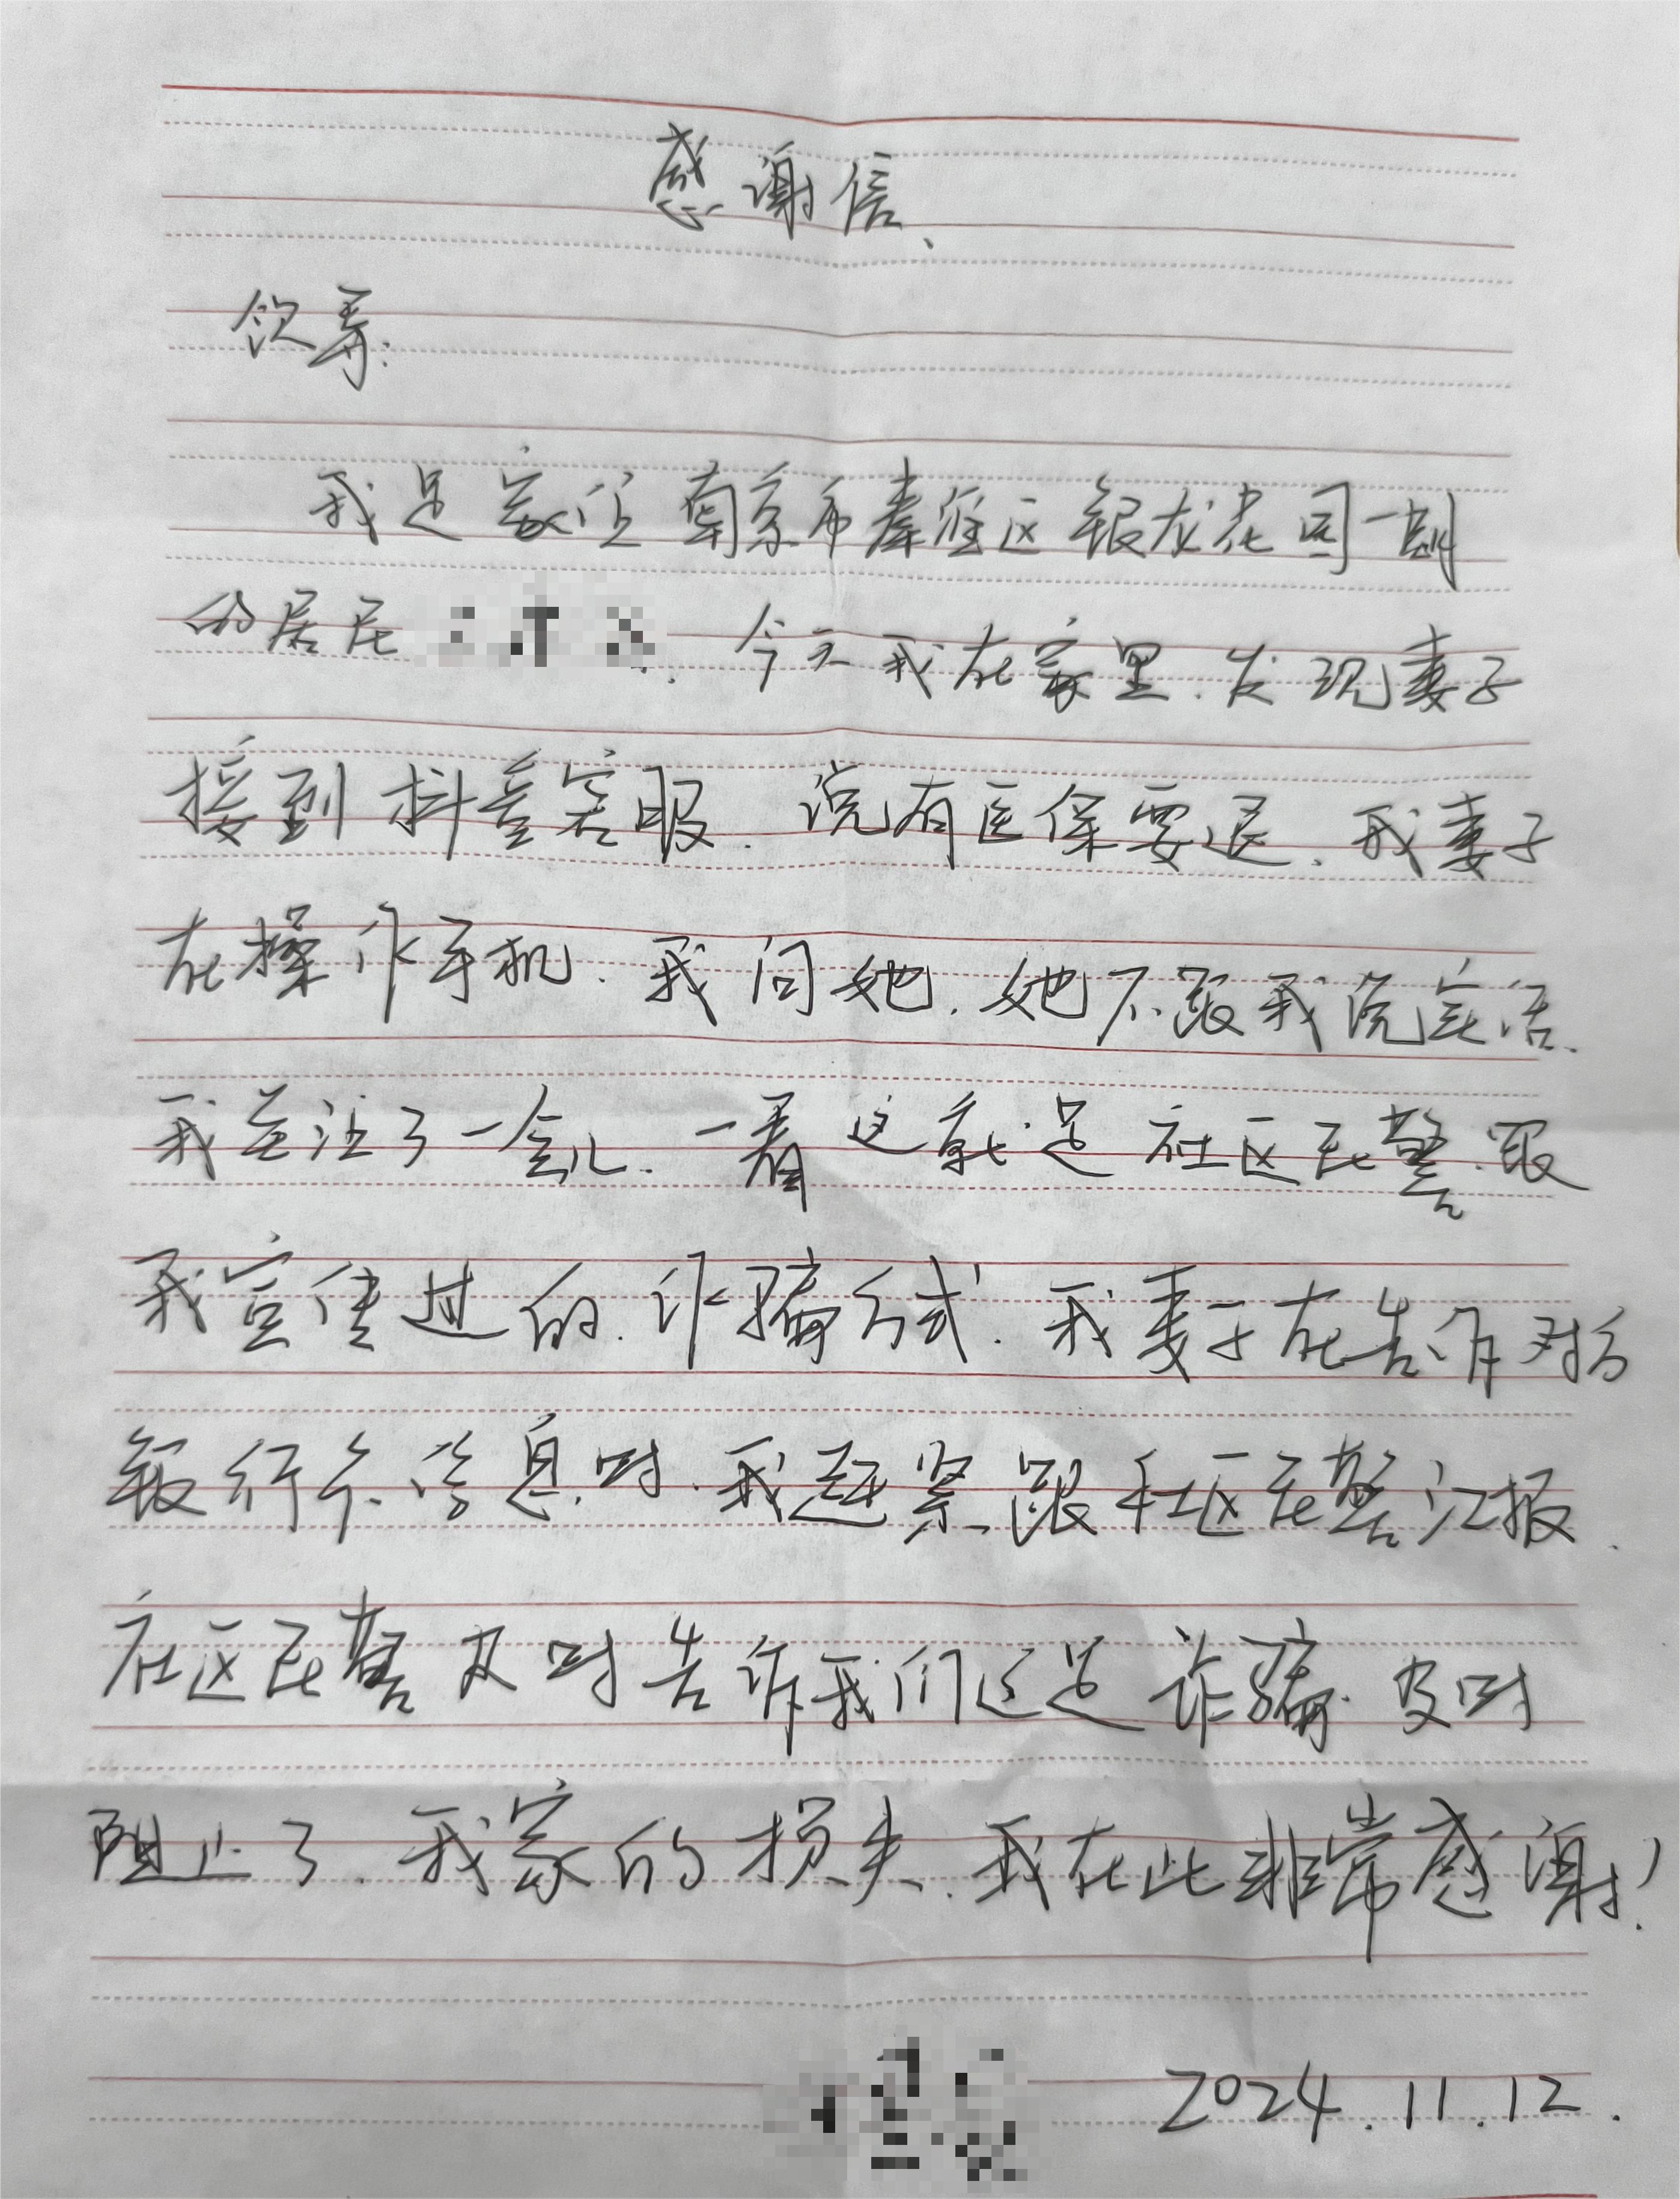 感谢信
饮寿:
我是家住南京市秦淮区银龙花园一期
的居民 今天我在家里.发现妻子
接到抖音客服.说有医保要退.我妻子
在操作手机.我问她.她不跟我说实话.
我关注了一会儿.一看这就是社区民警跟
我宣传过的.诈骗方式.我妻子在告诉对方
银行卡信息时.我赶紧跟社区民警汇报.
社区民警及时告诉我们这是诈骗.及时
阻止了.我家的损失.我在此非常感谢!
2024.11.12.